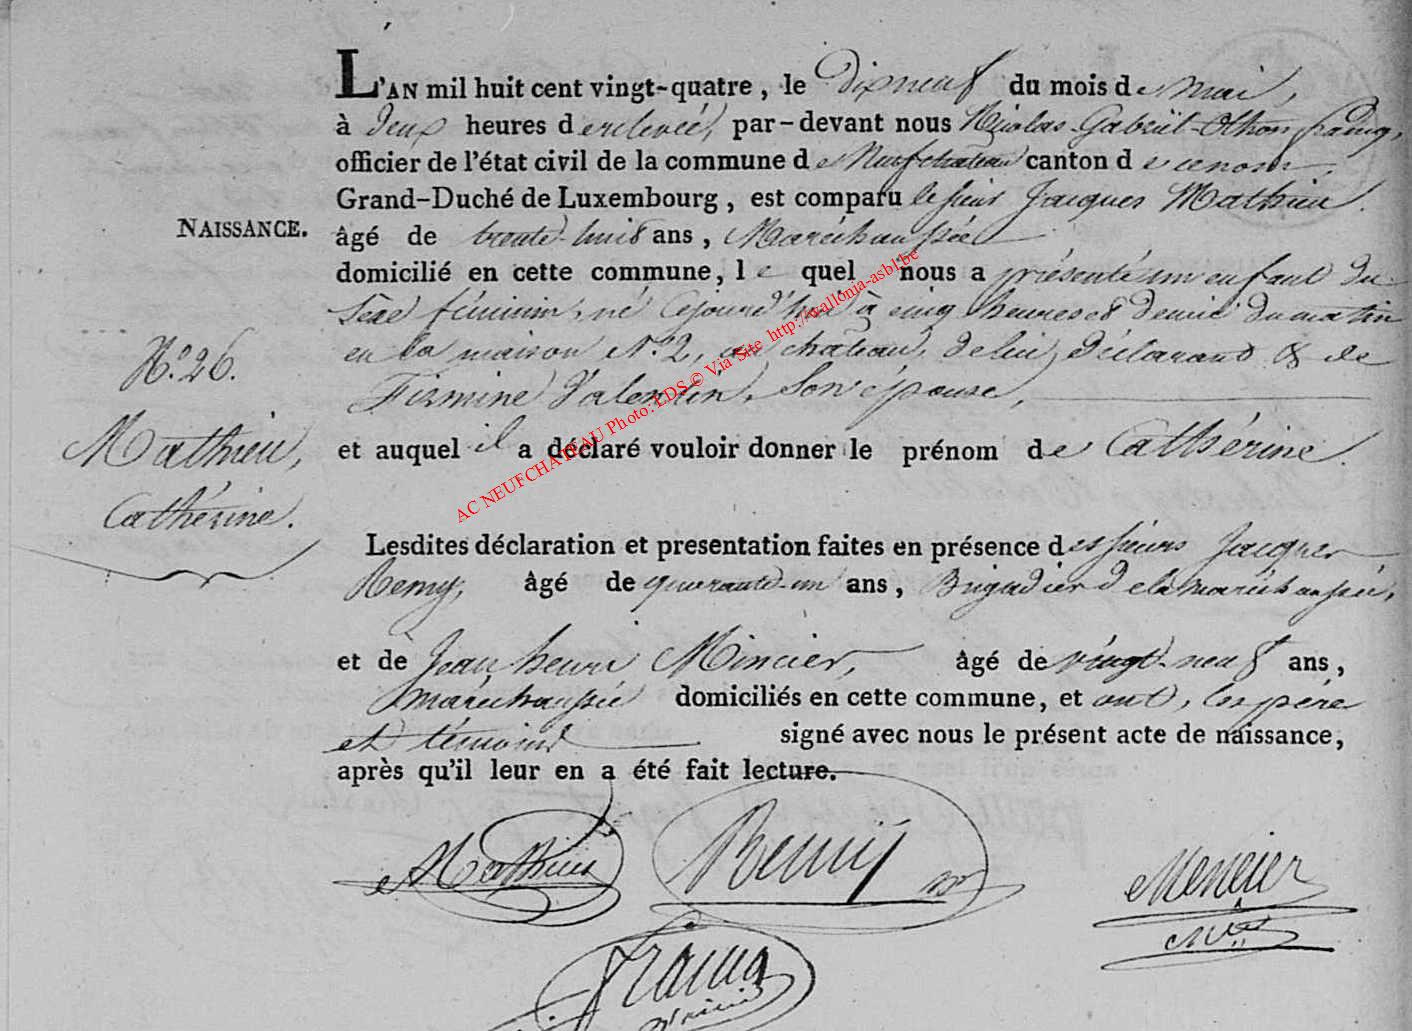 L'AN mil huit cent vingt-quatre, le dix neuf du mois de mai,
à deux heures de relevée, par-devant nous Nicolas-Gabriël-Othon
officier de l'état civil de la commune de Neufchateau canton de ce nom,
Grand-Duché de Luxembourg, est comparu le sieur Jacques Mathieu.
NAISSANCE.
âgé de trente-huit ans, Maréchaussée
domicilié en cette commune, le quel nous a présenté un enfant du
sèxe féminin, né cejourd'hui à cinq heures et demie du matin
en la maison N.o 2, au chateau, de lui, déclarant & de
Firmine Valentin, son épouse,
N.o 26.
Mathieu,
Cathérine.
et auquel il a déclaré vouloir donner le prénom de Cathérine.
Lesdites déclaration et presentation faites en présence des sieurs Jacques
Remy, âgé de quarante-un ans, Brigadier de la maréchaussée,
et de Jean henri Mincier, âgé de vingt-neuf ans,
maréchaussée domiciliés en cette commune, et ont, les père
et témoins signé avec nous le présent acte de naissance,
après qu'il leur en a été fait lecture.
Mathieu
Remy
Mencier
AC NEUFCHATEAU Photo: LDS © Via Site http://wallonia-asbl.be